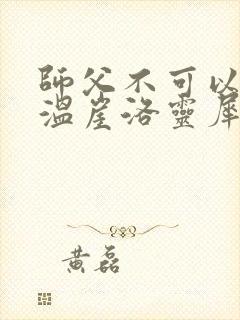 師父不可以
溫崖洛靈犀
黄磊